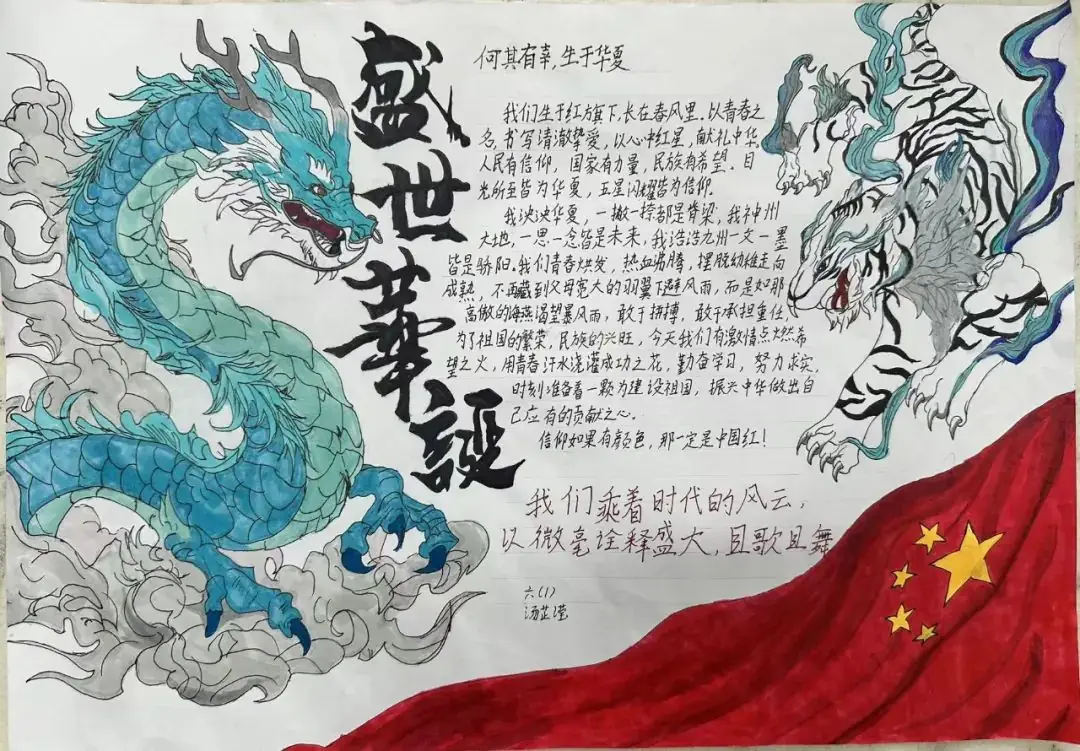 盛世華誕
何其有幸,生于华夏
我们生于红旗下,长在春风里.以青春之
名,书写清澈挚爱,以心中红星,献礼中华.
人民有信仰,国家有力量,民族有希望.目
光所至皆为华夏,五星闪耀皆为信仰.
我泱泱华夏,一撇一捺都是脊梁;我神州
大地,一思一念皆是未来,我浩浩九州一文一墨
皆是骄阳.我们青春烘发,热血沸腾,摆脱幼稚走向
成熟,不再藏到父母宽大的羽翼下避风雨,而是如那
高傲的海燕渴望暴风雨,敢于拼搏,敢于承担重任,
为了祖国的繁荣,民族的兴旺,今天我们有激情点燃希
望之火,用青春汗水浇灌成功之花,勤奋学习,努力求实,
时刻准备着一颗为建设祖国,振兴中华做出自
己应有的贡献之心。
信仰如果有颜色,那一定是中国红!
我们乘着时代的风云,
以微毫诠释盛大,且歌且舞
六(1)
汤芷滢